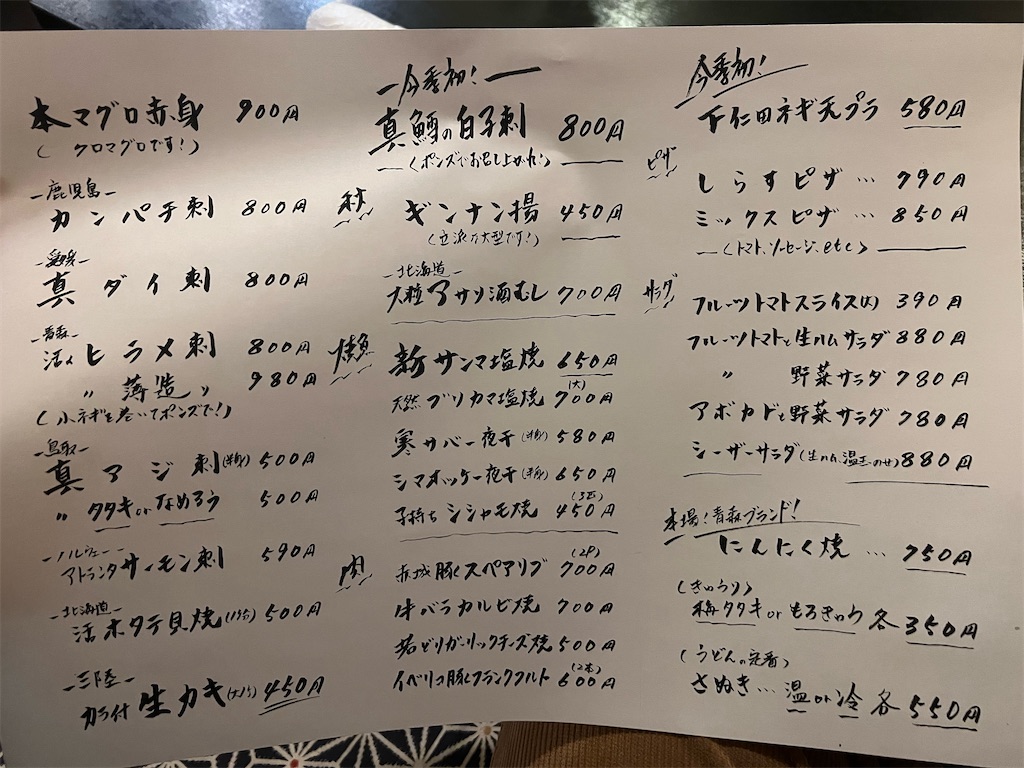 本マグロ赤身 900円
(クロマグロです!)
-鹿児島-
カンパチ刺 800円
-愛媛-
真ダイ刺 800円
-青森-
活〆ヒラメ刺 800円
〃 薄造り 980円
(小ネギを巻いてポンズで!)
-鳥取-
真アジ刺(半身) 500円
〃 タタキorなめろう 500円
-ノルウェー-
アトランタサーモン刺 590円
-北海道-
活ホタテ貝焼(1ケ付) 500円
-三陸-
カラ付生カキ(大1ケ) 450円
-今季初!-
真鱈の白子刺 800円
(ポンズでお召し上がれ!)
秋
ギンナン揚 450円
(立派な大型です!)
-北海道-
大粒アサリ酒むし 700円
焼魚
新サンマ塩焼 650円
天然ブリカマ塩焼(大) 700円
寒サバ一夜干(半身) 580円
シマホッケ一夜干(半身) 650円
子持ちシシャモ焼(3匹) 450円
肉
赤城豚スペアリブ(2P) 700円
牛バラカルビ焼 700円
若どりガーリックチーズ焼 500円
イベリコ豚フランクフルト(2本) 600円
今季初!
下仁田ネギ天プラ 580円
ピザ
しらすピザ… 790円
ミックスピザ… 850円
(トマト、ソーセージ、etc)
サラダ
フルーツトマトスライス(大) 390円
フルーツトマトと生ハムサラダ 880円
〃 野菜サラダ 780円
アボカドと野菜サラダ 780円
シーザーサラダ(生ハム、温玉のせ) 880円
本場!青森ブランド!
にんにく焼… 750円
(きゅうり)
梅タタキorもろきゅう 各350円
(うどんの定番)
さぬき…温or冷 各550円